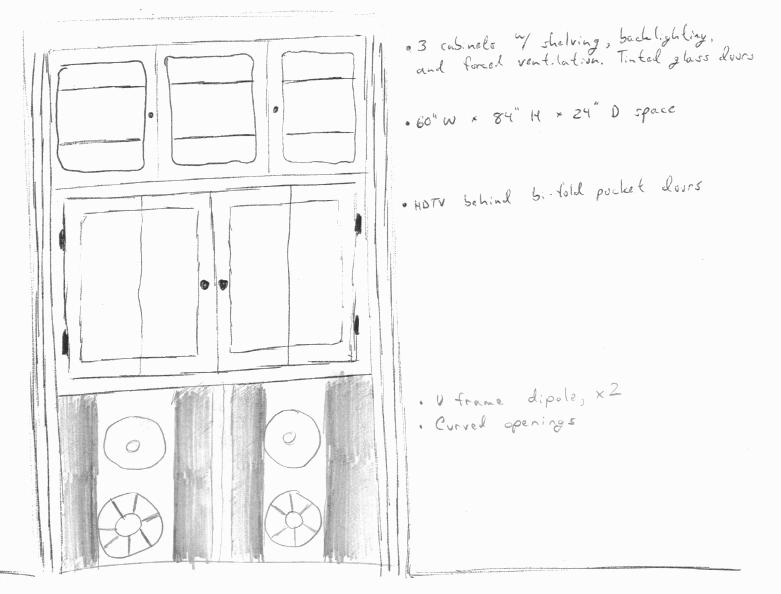 • 3 cabinets w/ shelving, backlighting,
and forced ventilation. Tinted glass doors
• 60" W × 84" H × 24" D space
• HDTV behind bi-fold pocket doors
• U frame dipole, x2
• Curved openings